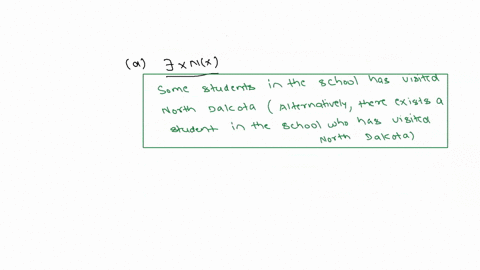 (a) ∃ x N(x)
Some students in the school has visited
North Dakota (Alternatively, there exists a
student in the school who has visited
North Dakota)